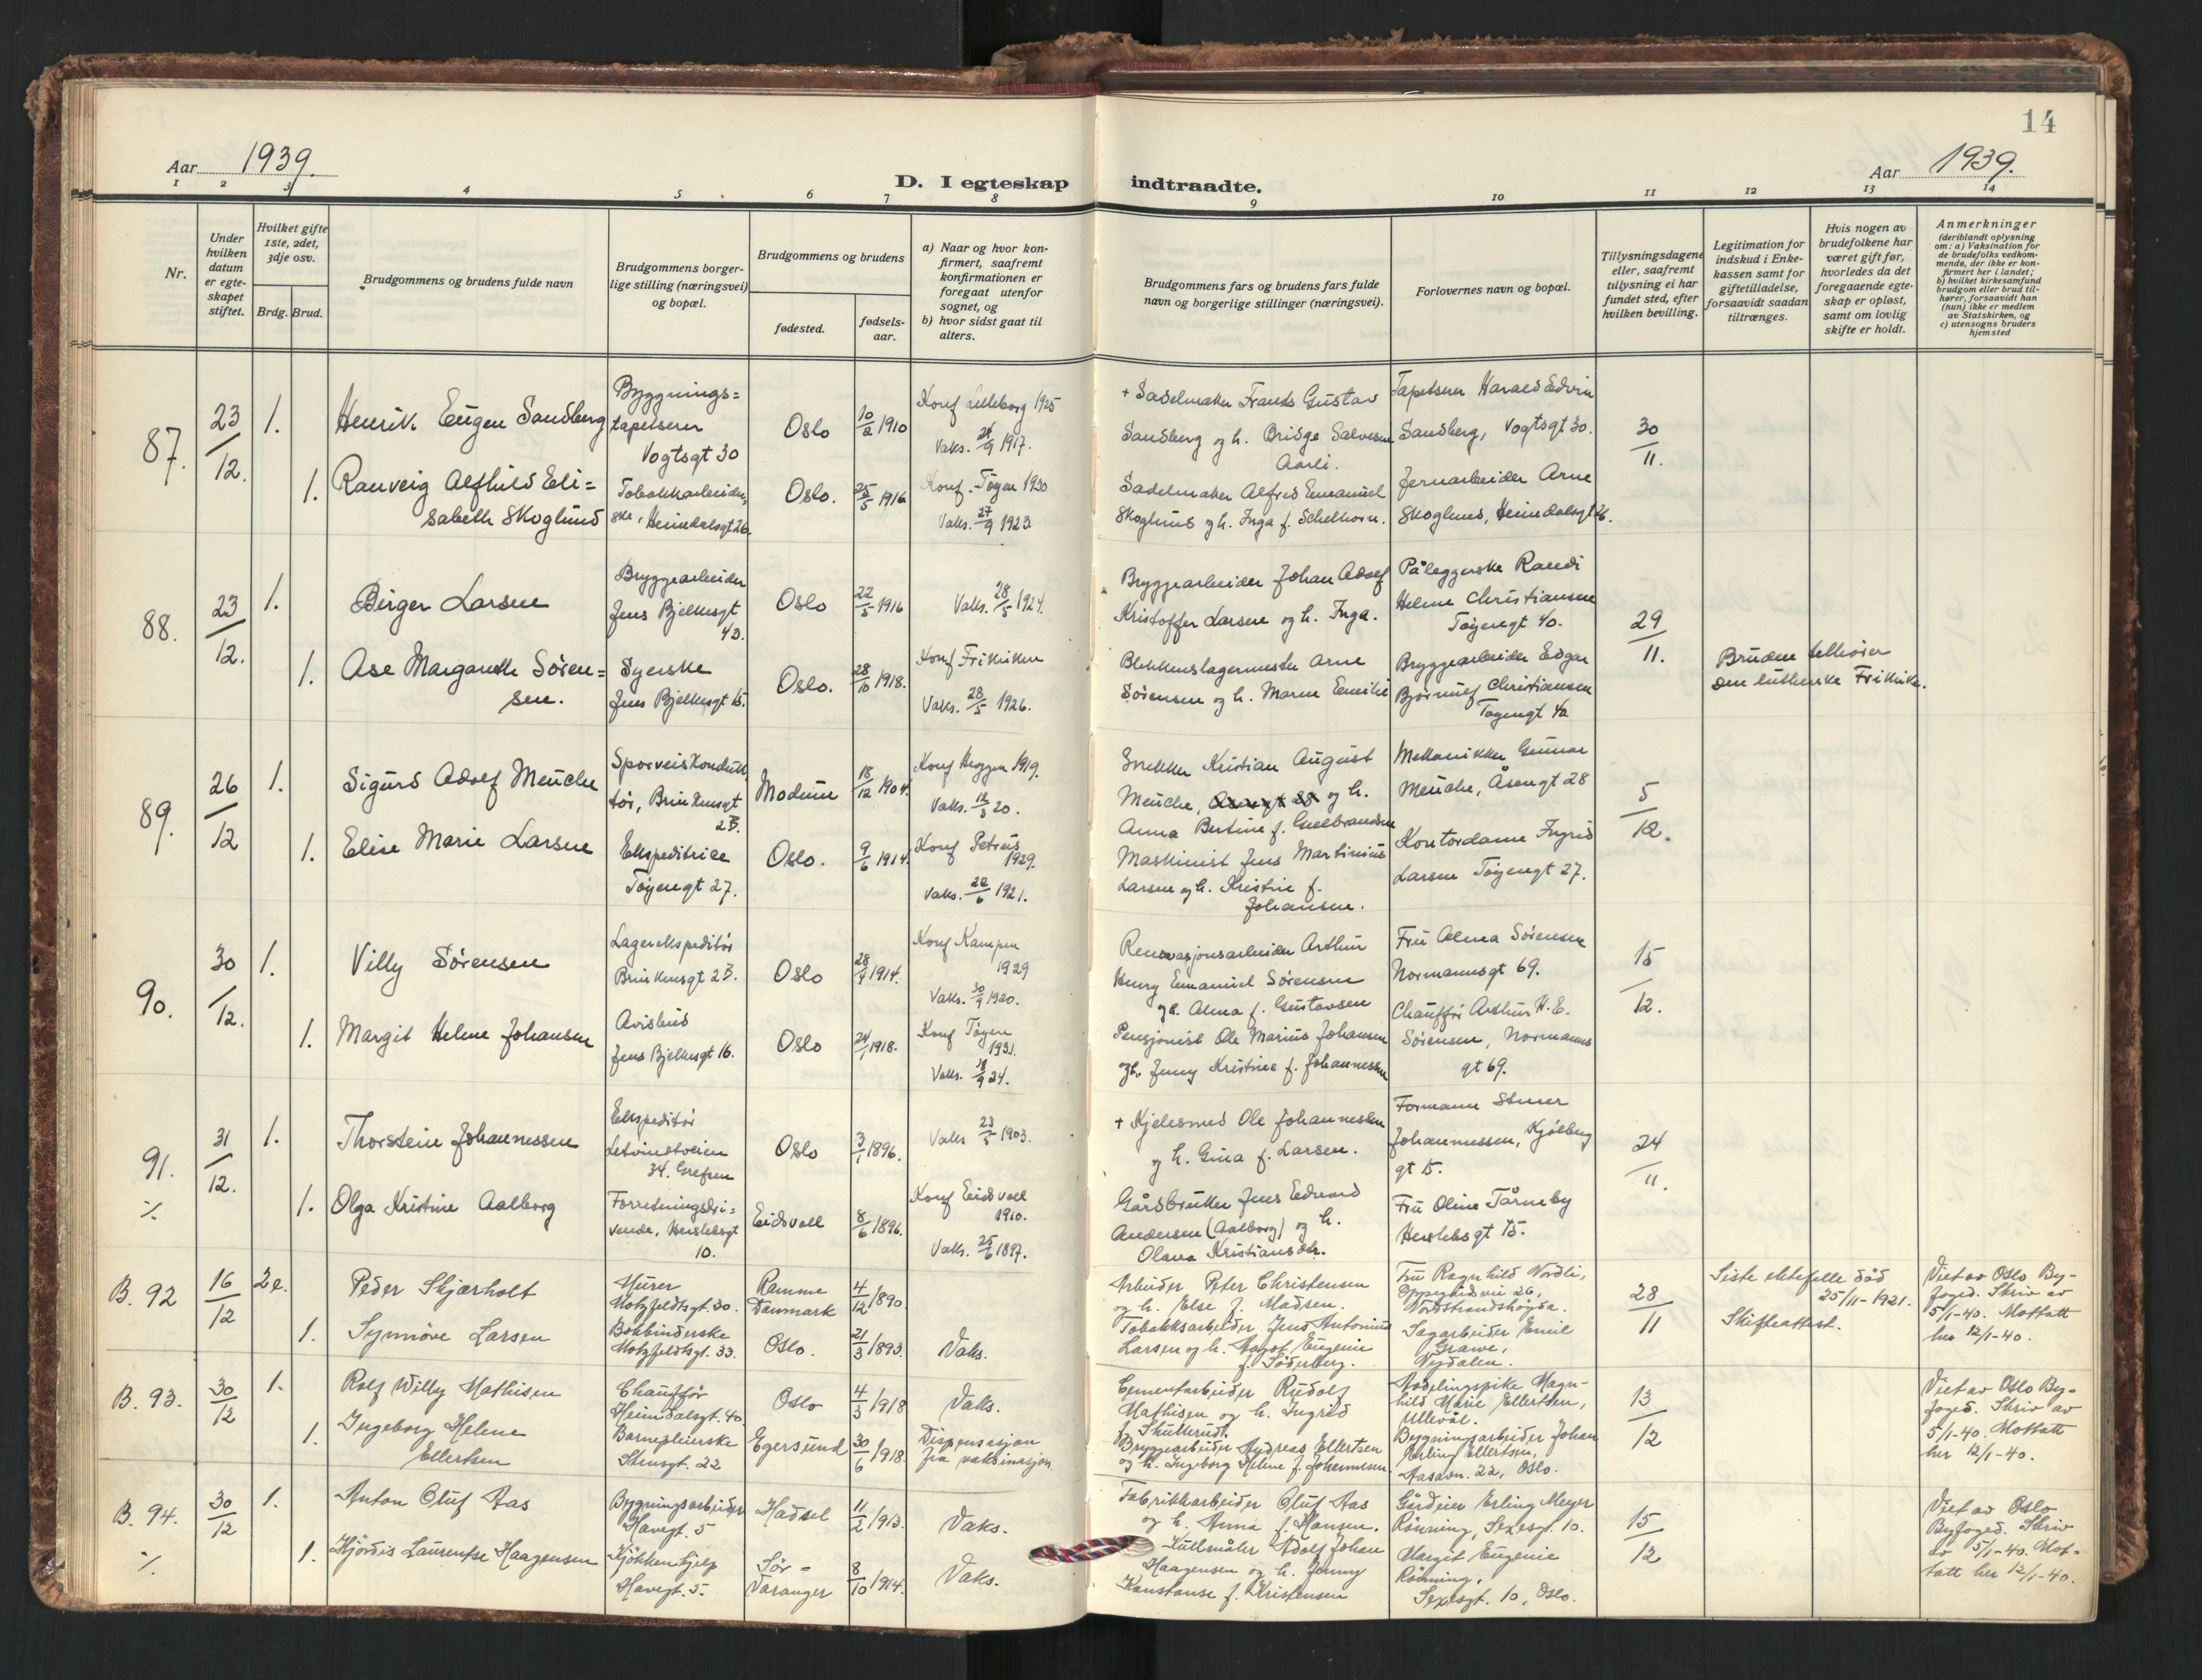 14
Aar 1939.
D. I egteskap indtraadte.
Aar 1939.
1 2 3 4 5 6 7 8 9 10 11 12 13 14
Nr.
Under hvilken datum er egteskapet stiftet.
Hvilket gifte 1ste, 2det, 3dje osv.
Brdg. Brud.
Brudgommens og brudens fulde navn
Brudgommens borgerlige stilling (næringsvei) og bopæl.
Brudgommens og brudens
fødested.
fødselsaar.
a) Naar og hvor konfirmert, saafremt konfirmationen er foregaat utenfor sognet, og
b) hvor sidst gaat til alters.
Brudgommens fars og brudens fars fulde navn og borgerlige stillinger (næringsvei).
Forlovernes navn og bopæl.
Tillysningsdagene eller, saafremt tillysning ei har fundet sted, efter hvilken bevilling.
Legitimation for indskud i Enkekassen samt for giftetilladelse, forsaavidt saadan tiltrænges.
Hvis nogen av brudefolkene har været gift før, hvorledes da det foregaaende egteskap er opløst, samt om lovlig skifte er holdt.
Anmerkninger
(deriblandt oplysning om: a) Vaksination for de brudefolks vedkommende, der ikke er konfirmert her i landet; b) hvilket kirkesamfund brudgom eller brud tilhører, forsaavidt han (hun) ikke er medlem av Statskirken, og c) utensogns bruders hjemsted
87. 23/12. 1.
Henrik Eugen Sandberg
Bygnings=
tapetserer
Vogtsgt 30
Oslo
10/2 1910
Konf Lilleborg 1925
Vaks. 1917.
+ Sadelmaker Frants Gustav
Sandberg og h. Bridge Salvesen
Aarli.
Tapetserer Harald Edvin
Sandberg, Vogtsgt 30.
30/11.
1. Ranveig Alfhild Eli=
sabeth Skoglund
Tobakkarbeider=
ske, Heimdalsgt 26.
Oslo.
25/5 1916
Konf. Tøyen 1930
Vaks. 27/9 1923
Sadelmaker Alfred Emanuel
Skoglund og h. Inga f. Schelhorn.
Jernarbeider Arne
Skoglund, Heimdalsgt 26.
88. 23/12. 1.
Birger Larsen
Bryggearbeider
Jens Bjelkesgt
43.
Oslo
22/5 1916
Vaks. 28/5 1924.
Bryggearbeider Johan Adolf
Kristoffer Larsen og h. Inga.
Påleggerske Randi
Helene Christiansen
Tøyengt 40.
29/11.
1. Ase Margareth Søren=
sen.
Syerske
Jens Bjelkesgt 15.
Oslo.
28/10 1918.
Konf Frikirken
Vaks. 28/5 1926.
Blikkenslagermester Arne
Sørensen og h. Maren Emilie
Bryggearbeider Edgar
Bjørnulf Christiansen
Tøyengt 40
Bruden tilhører
den lutherske Frikirke.
89. 26/12 1.
Sigurd Adolf Menche
Sporveiskonduk
tør, Brinkensgt
2B.
Modum
18/12 1904.
Konf Heggen 1919.
Vaks. 20.
Snekker Kristian August
Menche, og h.
Anna Bertine f. Gulbrandsen
Mekaniker Gunnar
Menche, Åsengt 28
5/12.
1. Elise Marie Larsen
Ekspeditrice
Tøyengt 27.
Oslo.
9/6 1914.
Konf Petrus
1929.
Vaks. 22/6 1921.
Maskinist Jens Martinius
Larsen og h. Kristine f.
Johansen.
Kontordame Ingrid
Larsen Tøyengt 27.
90. 30/12. 1.
Villy Sørensen
Lagerekspeditør
Brinkensgt 2B.
Oslo
28/4 1914.
Konf Kampen
1929
Vaks. 30/9 1920.
Renovasjonsarbeider Arthur
Henry Emanuel Sørensen
og h. Alma f. Gustavsen
Fru Alma Sørensen
Normannsgt 69.
15/12.
1. Margit Helene Johansen
Avisbud
Jens Bjelkesgt 16.
Oslo
24/1 1918.
Konf Tøyen
1931.
Vaks. 24.
Pensjonist Ole Marius Johansen
og h. Jenny Kristine f. Johannessen
Chauffør Arthur H. E.
Sørensen, Normanns
gt 69.
91. 31/12. 1.
Thorstein Johannessen
Ekspeditør
34. Grefsen
Oslo
3/1 1896.
Vaks 23/5 1903.
+ Kjelesmed Ole Johannessen
og h. Gina f. Larsen.
Formann
Johannessen, Kjølberg
gt 15.
24/11.
1. Olga Kristine Aalborg
Forretningsdri=
vende, Herslebsgt
10.
Eidsvoll
8/6 1896.
Konf Eidsvoll
1910.
Vaks. 25/6 1897.
Gårdbruker Jens Edvard
Andersen (Aalborg) og h.
Olava Kristiansdtr.
Fru Oline Tårneby
Herslebsgt 15.
B. 92 16/12 2e.
Peder Skjærholt
Murer
Motzfeldtsgt. 30.
Ramme
Danmark
4/12 1890.
Arbeider Peter Christensen
og h. Else f. Madsen.
Fru Ragnhild Nordli,
Oppegårdsvei 26,
Nordstrandshøgda.
28/11
Siste ektefelle død
25/11-1921.
Skifteattest.
Viet av Oslo By-
foged. Skriv av
5/1-40. Mottatt
her 12/1-40.
1. Synnøve Larsen
Bokbinderske
Motzfeldtsgt. 33.
Oslo.
21/3 1893.
Vaks.
Tobakksarbeider Jens Antonius
Larsen og h. Hagot Eugenie
f. Söderberg.
Sagarbeider Emil
Grawe,
Nydalen.
B. 93. 30/12 1.
Rolf Willy Mathisen
Chauffør
Heimdalsgt. 40.
Oslo
4/3 1918
Vaks.
Cementarbeider Rudolf
Mathisen og h. Ingrid
f. Skullerud.
Avdelingspike Magn-
hild Marie Ellertsen,
Ullevål.
13/12
Viet av Oslo By-
foged. Skriv av
5/1-40. Mottatt
her 12/1-40.
1. Ingeborg Helene
Ellertsen
Barnepleierske
Stensgt. 22
Egersund
30/6 1918.
Dispensasjon
fra vaksinasjon.
Bryggearbeider Andreas Ellertsen
og h. Ingeborg Helene f. Johannesen.
Bygningsarbeider Johan
Erling Ellertsen,
Aasavn. 22, Oslo.
B. 94. 30/12 1.
Anton Oluf Aas
Bygningsarbeider
Havegt. 5
Hadsel
11/2 1913.
Vaks.
Fabrikkarbeider Oluf Aas
og h. Anna f. Hansen.
Gårdeier Erling Meyer
Rönning, Sexesgt. 10.
15/12
Viet av Oslo
Byfoged. Skriv
av 5/1-40. Mot-
tatt her 12/1-40.
1. Hjördis Laurentse Haagensen
Kjökkenhjelp
Havegt. 5.
Sör=
Varanger
8/10 1914.
Vaks.
Kullmåler Adolf Johan
Haagensen og h. Jenny
Konstanse f. Kristensen
Margit Eugenie
Rönning,
Sexesgt. 10, Oslo.